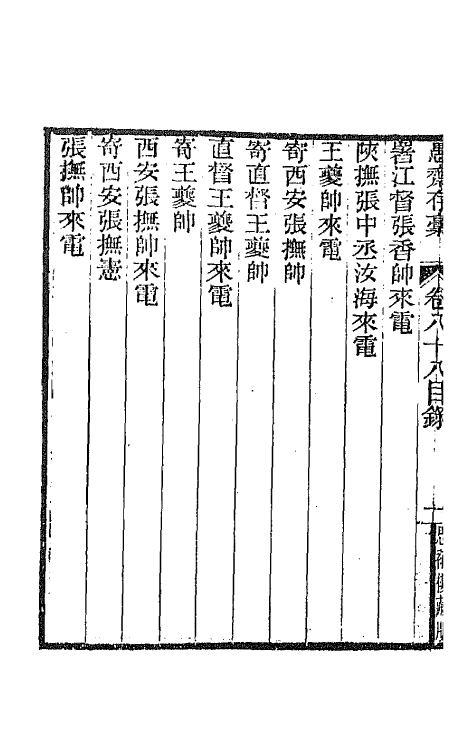 愚齋存稾 卷八十八目錄 十
署江督張香帥來電
陝撫張中丞汝海來電
王夔帥來電
寄西安張撫帥
寄直督王夔帥
直督王夔帥來電
寄王夔帥
西安張撫帥來電
寄西安張撫憲
張撫帥來電